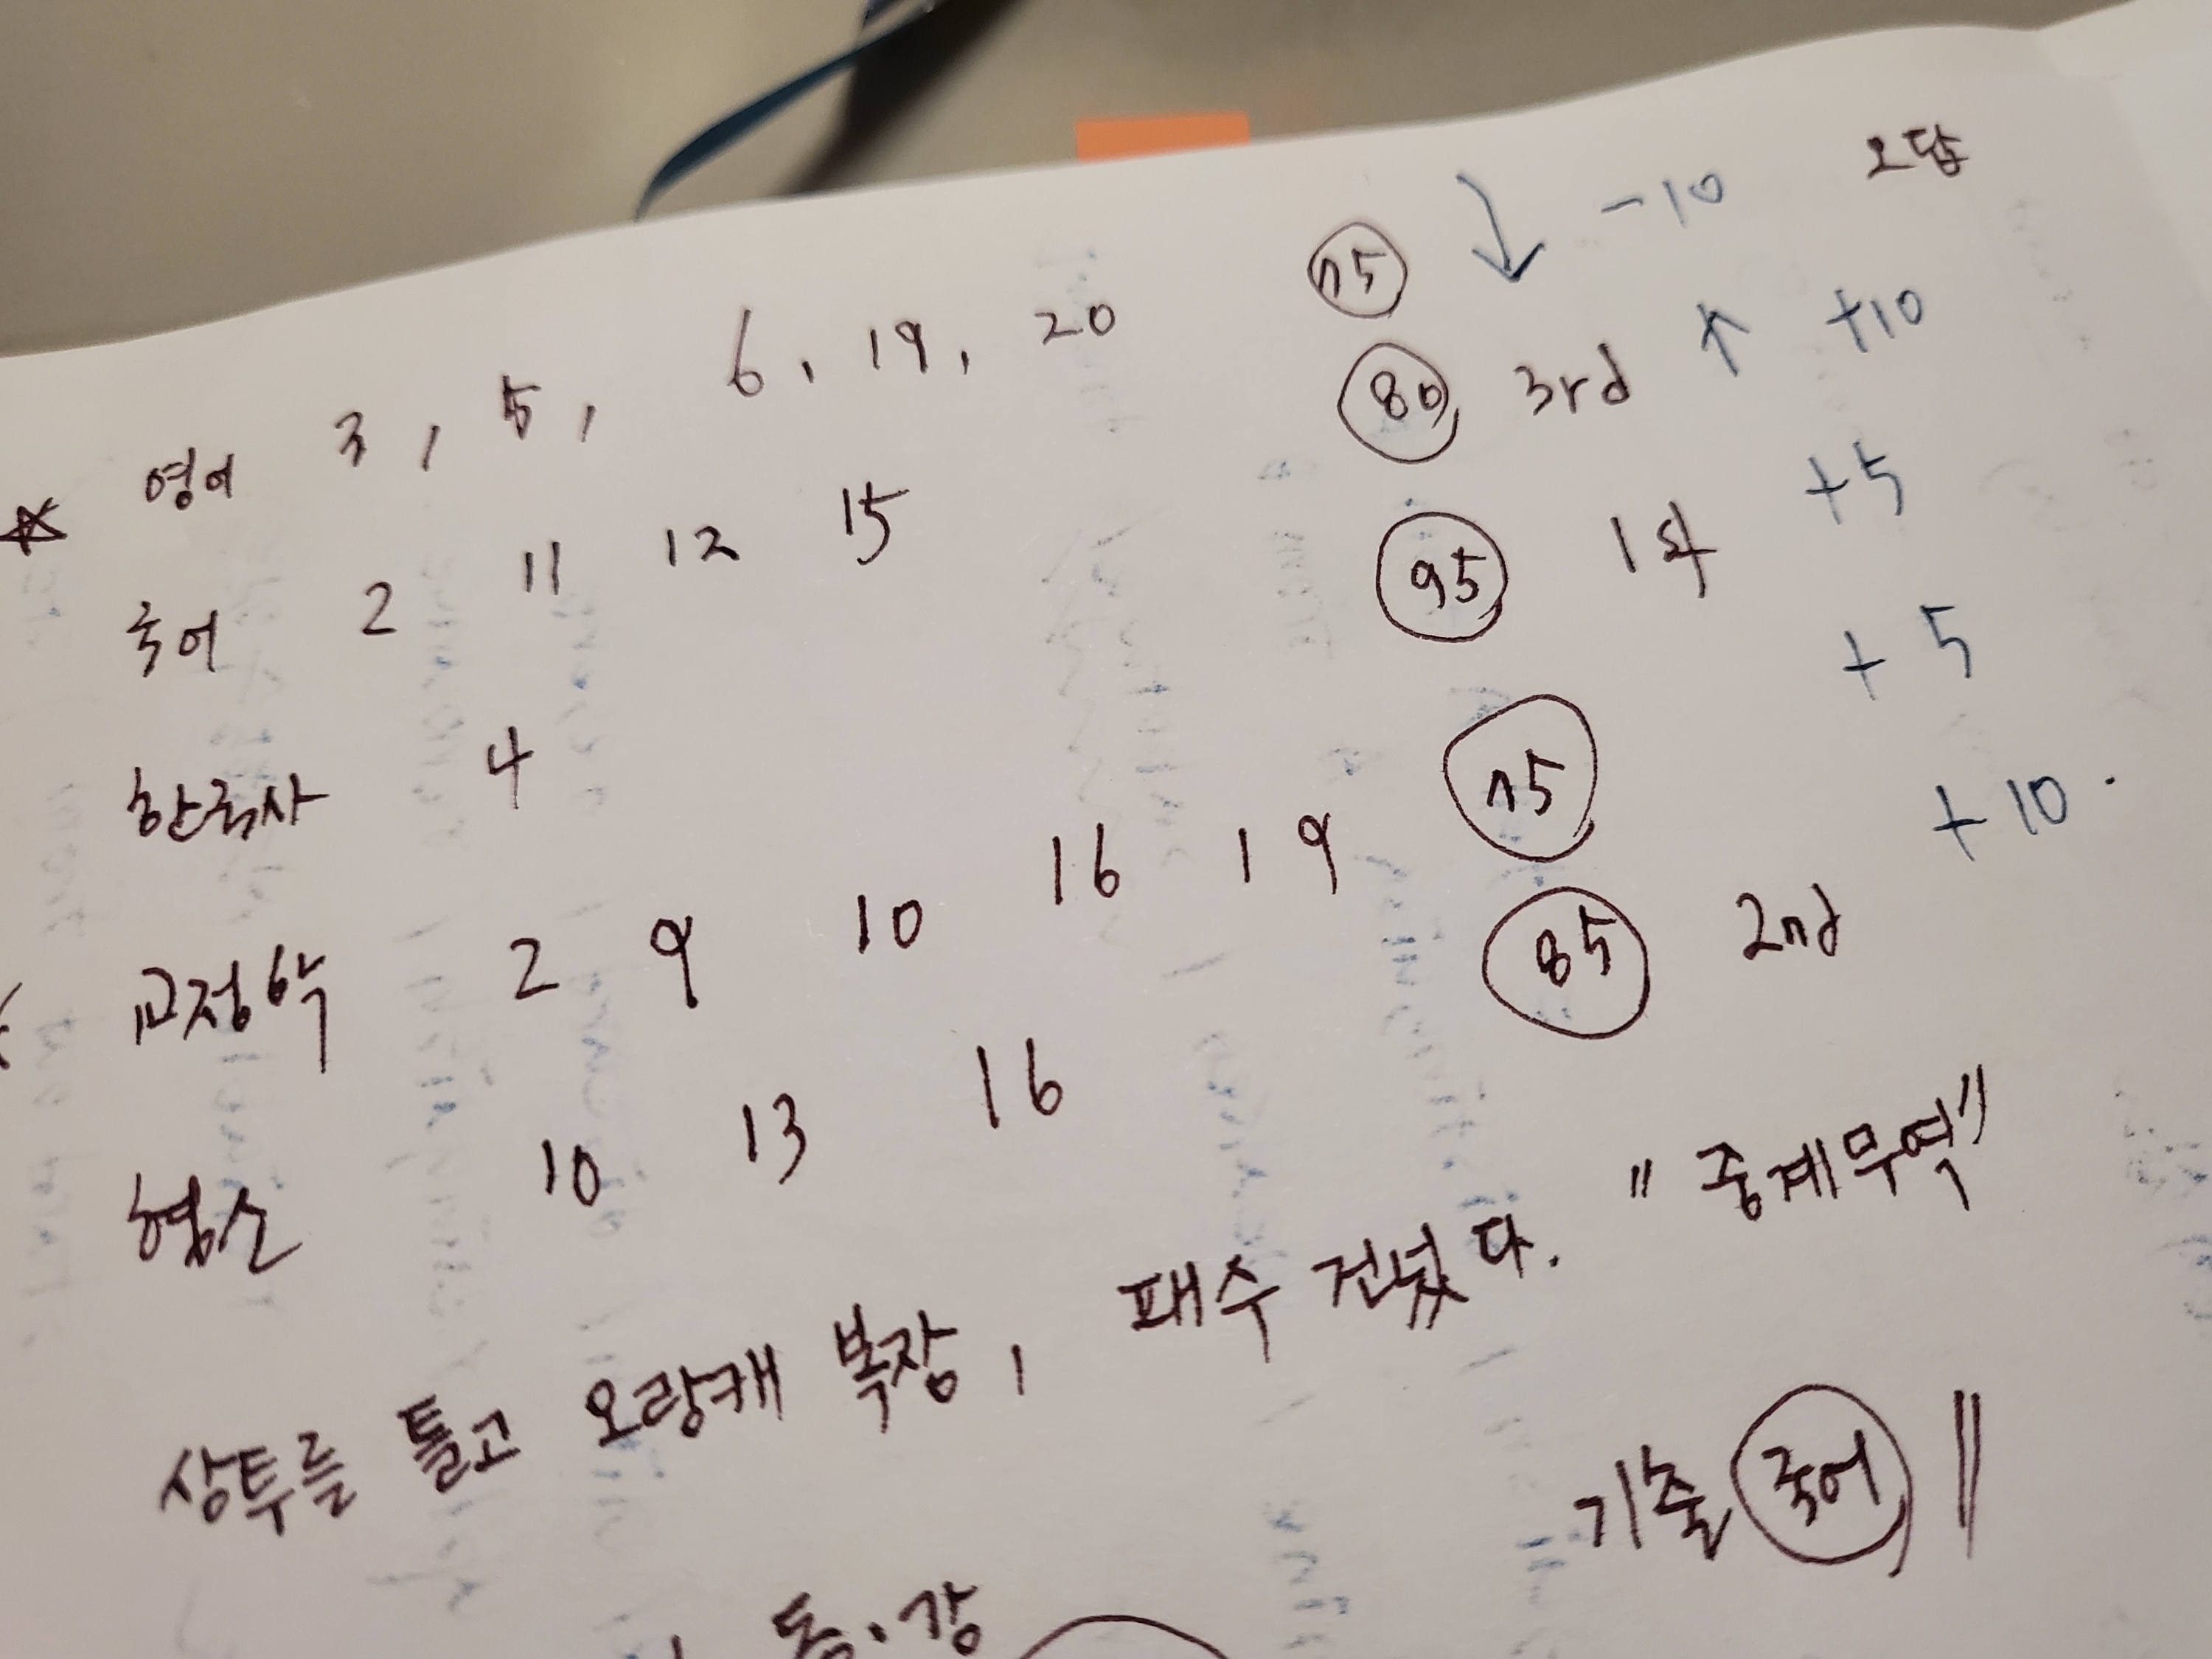 오답
☆ 영어 3, 5, 6, 19, 20 75 ↓ -10
국어 2 11 12 15 80 3rd ↑ +10
한국사 4 95 1st +5
교정학 2 9 10 16 19 75 +5
형소 10 13 16 85 2nd +10.
상투를 틀고 오랑캐 복장, 패수 건넜다. "중계무역"
기출 국어 ||
동·강